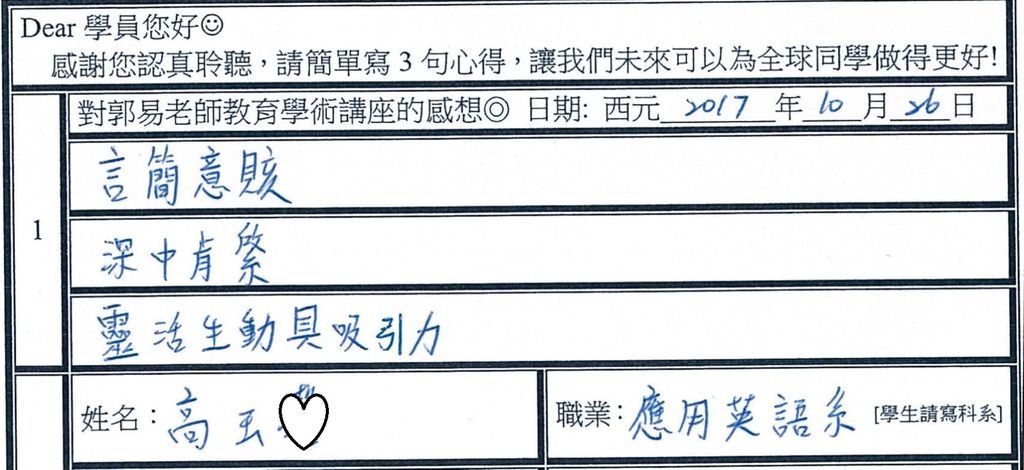 Dear 學員您好☺
感謝您認真聆聽，請簡單寫 3 句心得，讓我們未來可以為全球同學做得更好!
對郭易老師教育學術講座的感想◎ 日期: 西元 2017 年 10 月 26 日
1
言簡意賅
深中肯綮
靈活生動具吸引力
姓名：高玉 職業：應用英語系 [學生請寫科系]